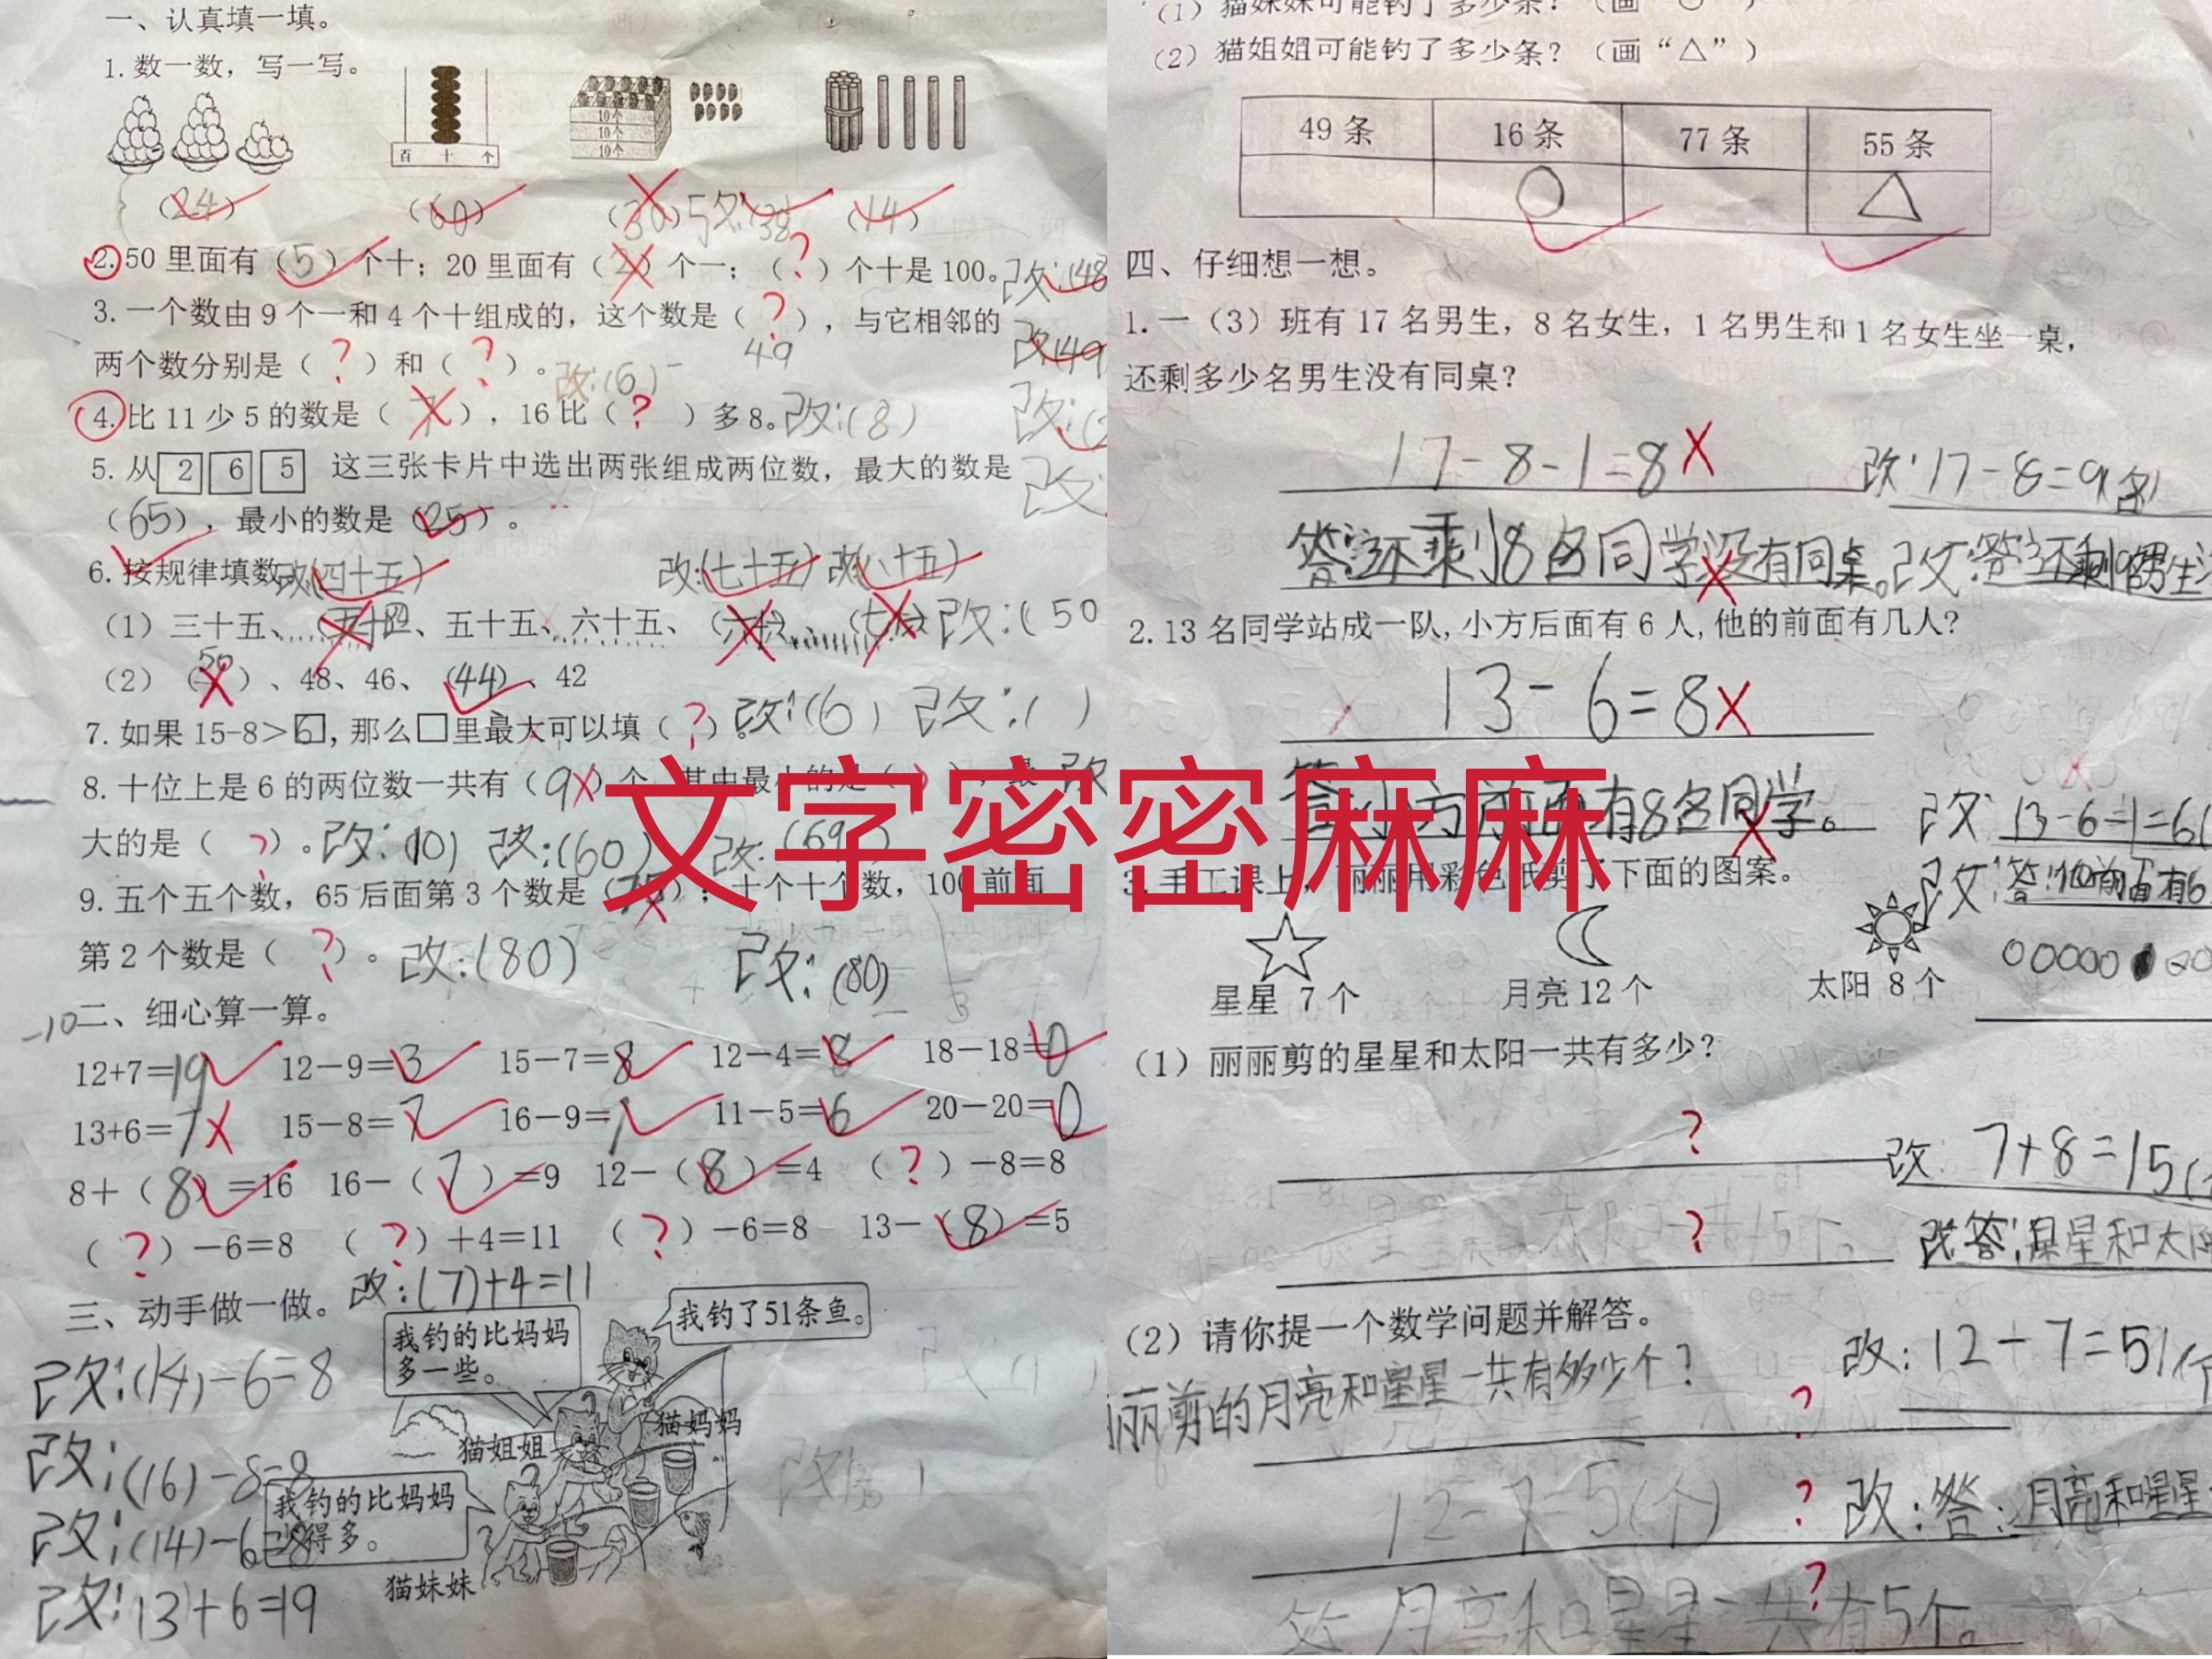 一、认真填一填。
1.数一数，写一写。
10个
10个
10个
百 十 个
(24) (60) (30) 改:(38) (14)
2.50里面有(5)个十；20里面有( )个一；(?)个十是100。改:(48
3.一个数由9个一和4个十组成的，这个数是(?)，与它相邻的
49
改:(49
两个数分别是(?)和(?)。改:(6)
4.比11少5的数是( )，16比(?)多8。改:(8) 改:(
5.从 2 6 5 这三张卡片中选出两张组成两位数，最大的数是
改:
(65)，最小的数是(25)。
6.按规律填数。改:(四十五) 改:(七十五) 改:(八十五)
(1) 三十五、( )、五十五、六十五、( )、( ) 改:(50
(2) (50)、48、46、(44)、42
7.如果15-8>6，那么□里最大可以填(?)。改:(6) 改:( )
8.十位上是6的两位数一共有(9)个，其中最小的是( )，最 改
大的是(?)。改:(10) 改:(60) 改:(69)
9.五个五个数，65后面第3个数是(75)；十个十个数，100前面
第2个数是(?)。改:(80) 改:(80)
-10
二、细心算一算。
12+7=19 12-9=3 15-7=8 12-4=8 18-18=0
13+6=7 15-8=7 16-9=7 11-5=6 20-20=0
8+(8)=16 16-(7)=9 12-(8)=4 (?)-8=8
(?)-6=8 (?)+4=11 (?)-6=8 13-(8)=5
三、动手做一做。改:(7)+4=11
我钓了51条鱼。
我钓的比妈妈
多一些。
改:(14)-6=8
猫妈妈
猫姐姐
改:(16)-8=8
我钓的比妈妈
得多。
改:(14)-6=8
猫妹妹
改:13+6=19
文字密密麻麻
(1) 猫妹妹可能钓了多少条？(画“○”)
(2) 猫姐姐可能钓了多少条？(画“△”)
49条 16条 77条 55条
○ △
四、仔细想一想。
1.一(3)班有17名男生，8名女生，1名男生和1名女生坐一桌，
还剩多少名男生没有同桌？
17-8-1=8 改:17-8=9(名)
答:还乘小8名同学没有同桌。改:答:还剩9名男生没
2.13名同学站成一队,小方后面有6人,他的前面有几人？
13-6=8
答:小方前面有8名同学。
改:13-6-1=6(
改:答:他前面有6
3.手工课上，丽丽用彩色纸剪了下面的图案。
星星 7个 月亮12个 太阳 8个
(1) 丽丽剪的星星和太阳一共有多少？
?
改:7+8=15(
?
改:答:星星和太阳
(2) 请你提一个数学问题并解答。
改:12-7=5(个
丽剪的月亮和星星一共有多少个？
?
12-7=5(个) ? 改:答:月亮和星星
?
答:月亮和星星一共有5个。